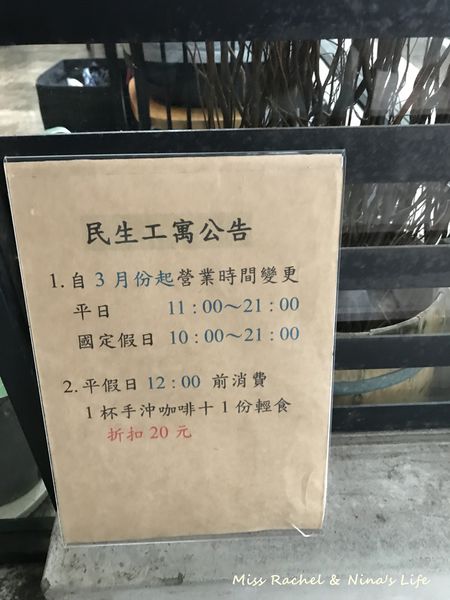 民生工寓公告
1.自 3 月份起營業時間變更
平日 11：00～21：00
國定假日 10：00～21：00
2.平假日 12：00 前消費
1 杯手沖咖啡＋1 份輕食
折扣 20 元
Miss Rachel & Nina's Life